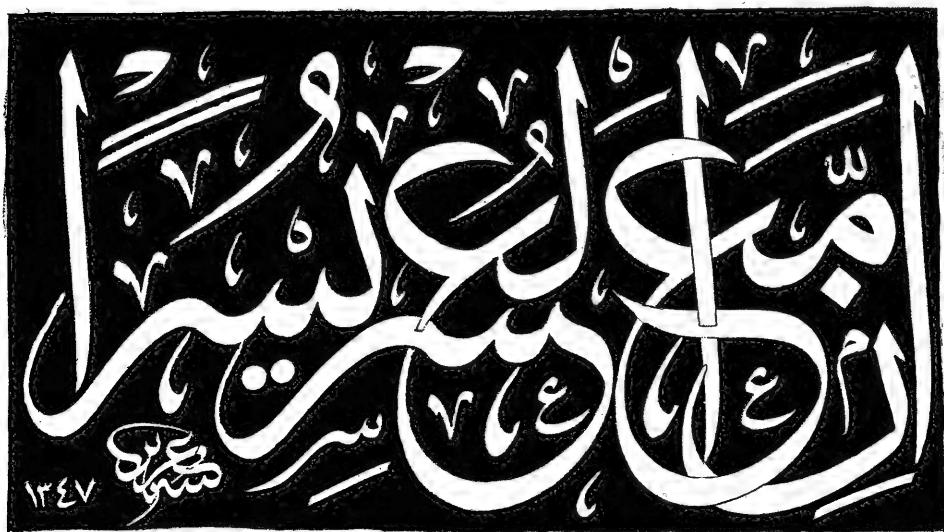 إِنَّ مَعَ الْعُسْرِ يُسْرًا
١٣٤٧